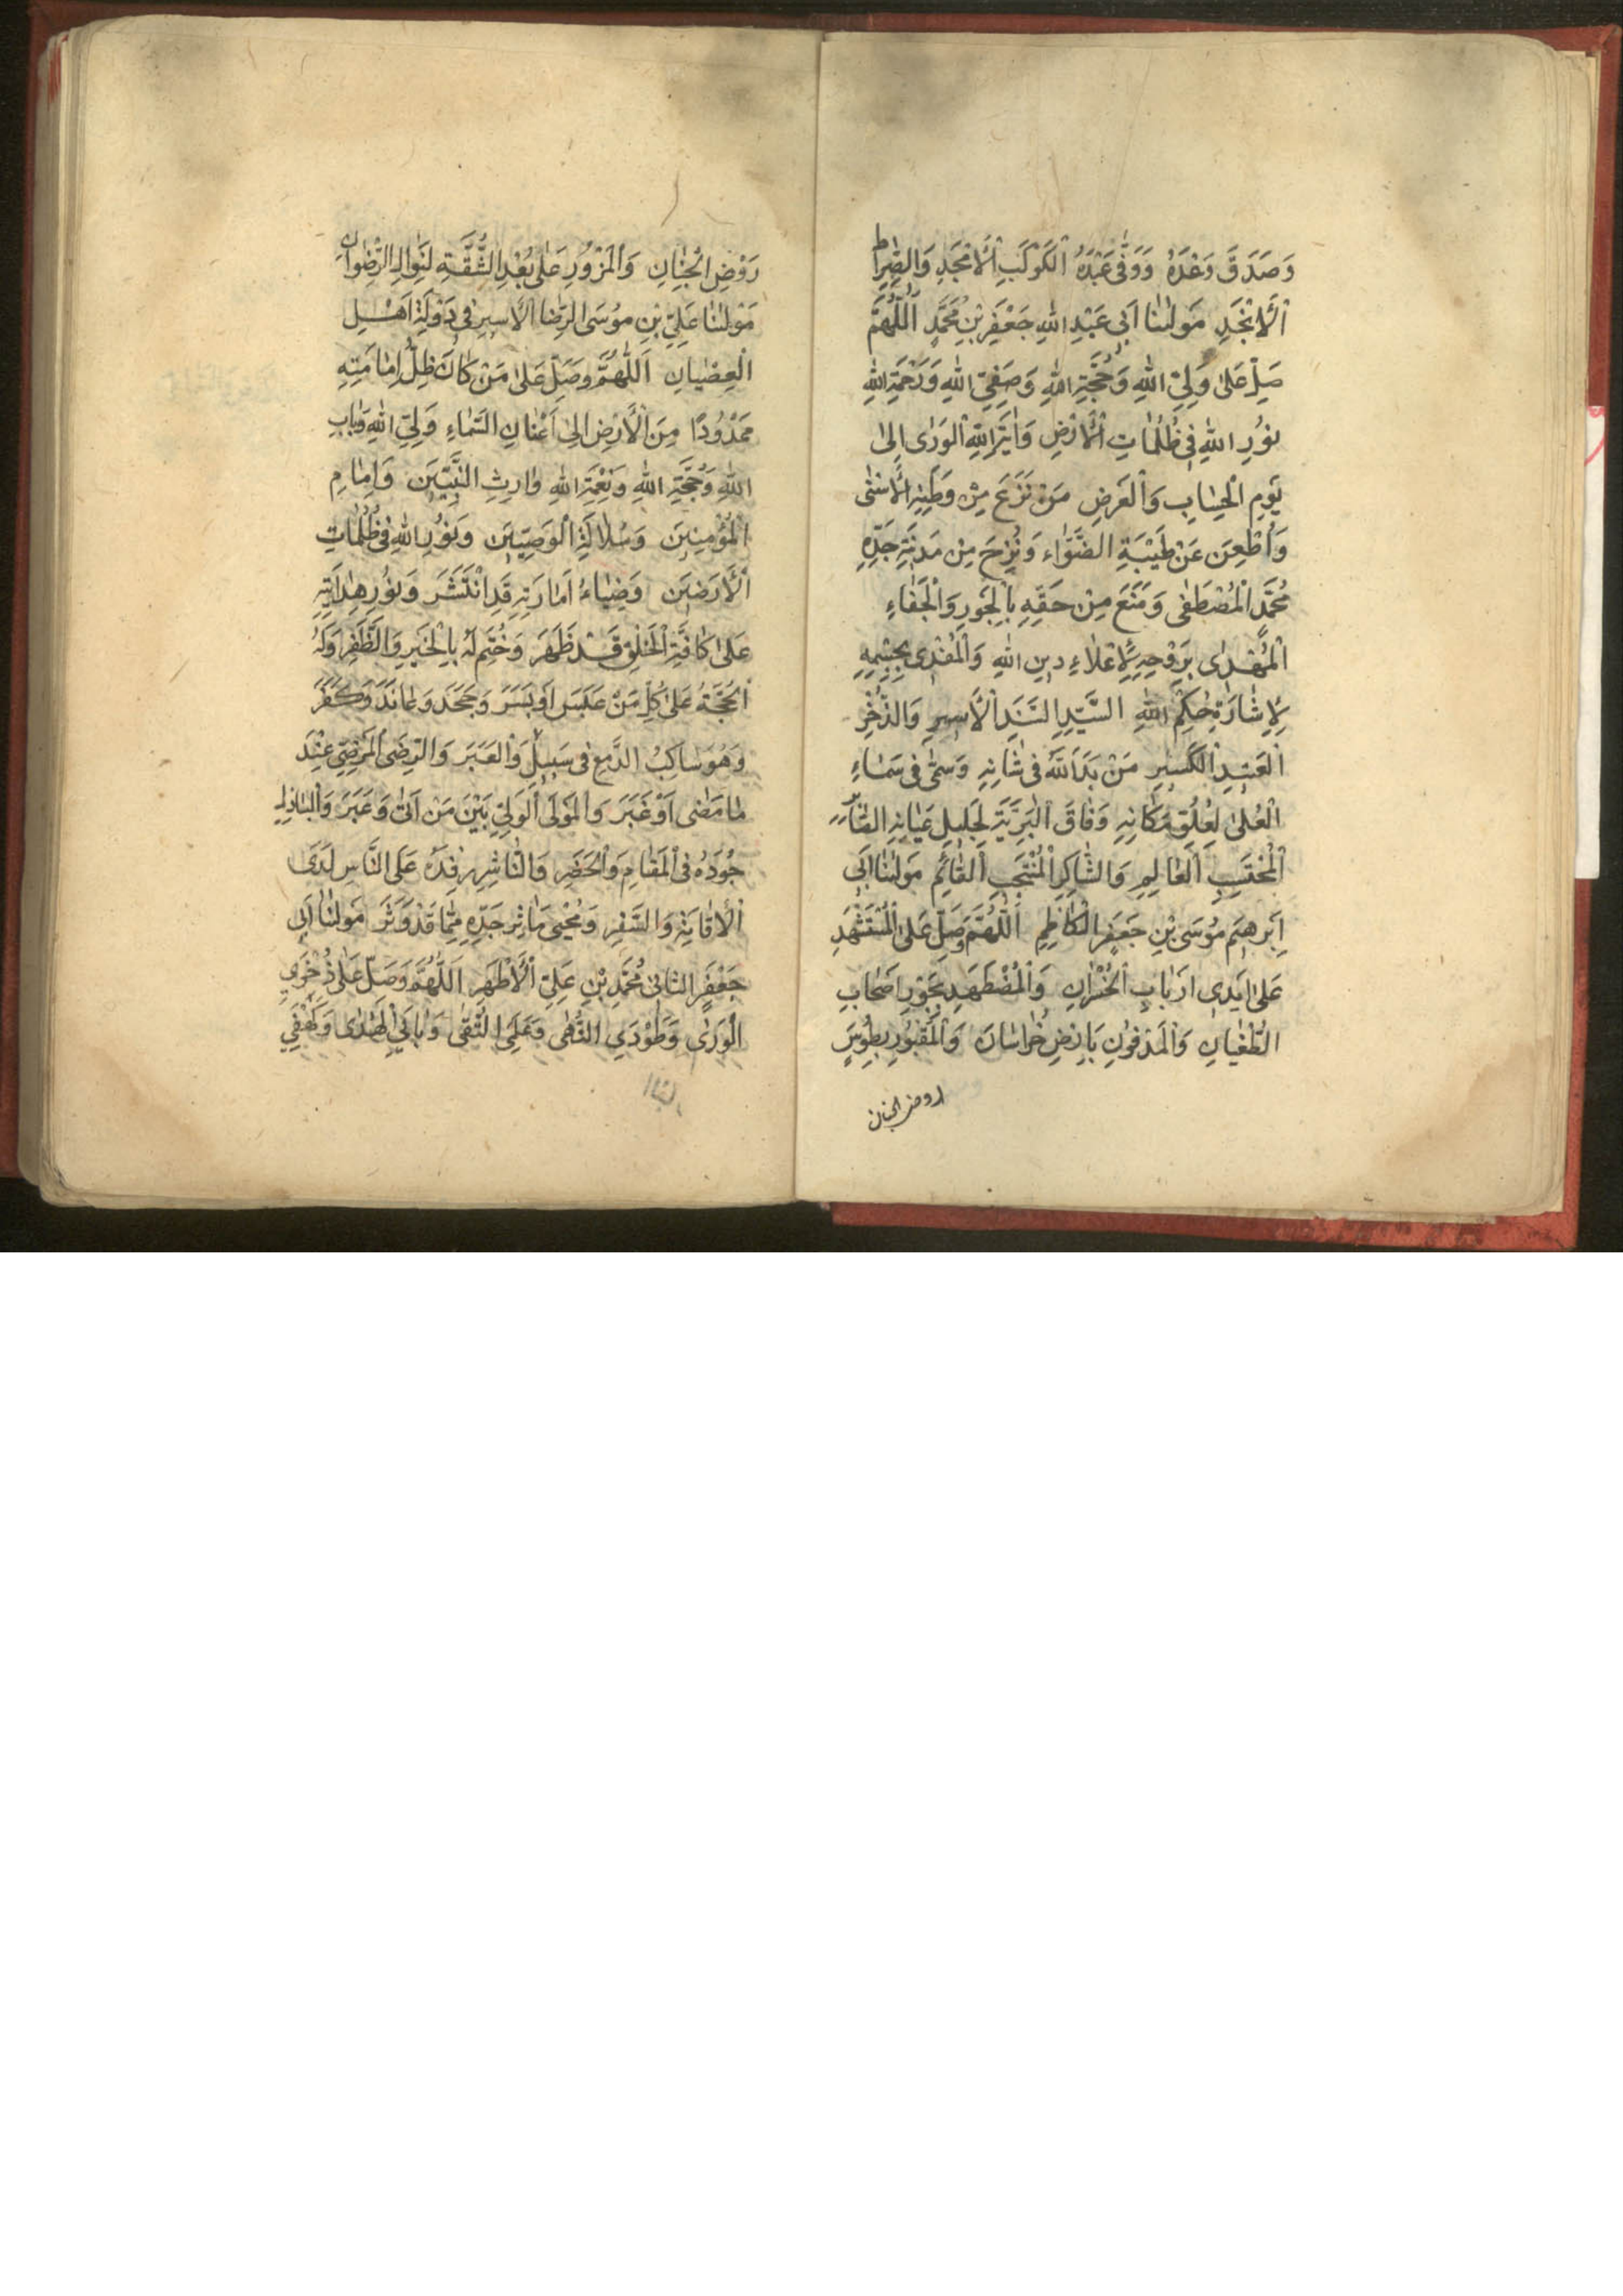 وَصَدَقَ وَعْدَهُ وَوَفٰى عَبْدَهُ الْكَوْكَبِ الْأَمْجَدِ وَالصِّرٰاطِ
الْأَنْجَدِ مَوْلٰنٰا اَبِى عَبْدِ اللهِ جَعْفَرِ بْنِ مُحَمَّدٍ اَللّٰهُمَّ
صَلِّ عَلٰى وَلِيِّ اللهِ وَحُجَّةِ اللهِ وَصَفِيِّ اللهِ وَرَحْمَةِ اللهِ
نُورِ اللهِ فِى ظُلُمٰاتِ الْأَرْضِ وَاٰيَةِ اللهِ الْوَرٰى اِلٰى
يَوْمِ الْحِسٰابِ وَالْعَرْضِ مَنْ نَزَعَ مِنْ وَطَنِهِ الْأَسْنٰى
وَأُظْعِنَ عَنْ طَيْبَةِ وَنُزِحَ مِنْ مَدِنَةِ جَدِّهِ
مُحَمَّدٍ الْمُصْطَفٰى وَمُنِعَ مِنْ حَقِّهِ بِالْجَوْرِ وَالْجَفٰاءِ
بِرَوْحِهِ لِإِعْلٰاءِ دِينِ اللهِ وَالْمُفْدٰى بِجِسْمِهِ
لِإِشٰارَةِ حُكْمِ اللهِ السَّيِّدِ السَّنَدِ الْأَسِيرِ وَالذُّخْرِ
الْعَتِيدِ الْكَسِيرِ مَنْ بَدَأَ اللهُ فِى شَانِهِ وَسَمٰى فِى سَمٰاءِ
الْعُلٰى لِعُلُوِّ مَكٰانِهِ وَفٰاقَ الْبَرِيَّةَ لِجَلِيلِ عَيٰانِهِ الصّٰابِرِ
الْمُحْتَسِبِ الْعٰالِمِ وَالشّٰاكِرِ الْمُنْتَجَبِ الْقٰائِمِ مَوْلٰنٰا اَبِى
اِبْرٰهِيمَ مُوسَى بْنِ جَعْفَرٍ الْكٰاظِمِ اَللّٰهُمَّ وَصَلِّ عَلَى الْمُسْتَشْهَدِ
عَلٰى اَيْدِى اَرْبٰابِ الْخُسْرٰانِ وَالْمُضْطَهَدِ بِجَوْرِ اَصْحٰابِ
الطُّغْيٰانِ وَالْمَدْفُونِ بِاَرْضِ خُرٰاسٰانَ وَالْمَقْبُورِ بِطُوسٍ
روض الجنان
رَوْضِ الْجِنٰانِ وَالْمَزُورِ عَلٰى بُعْدِ الشُّقَّةِ لِنَوٰالِ الرِّضْوٰانِ
مَوْلٰنٰا عَلِيِّ بْنِ مُوسَى الرِّضٰا الْاَسِيرِ فِى دَوْلَةِ اَهْلِ
الْعِصْيٰانِ اَللّٰهُمَّ وَصَلِّ عَلٰى مَنْ كٰانَ ظِلُّ اِمٰامَتِهِ
مَمْدُودًا مِنَ الْأَرْضِ اِلٰى اَعْنٰانِ السَّمٰاءِ وَلِيِّ اللهِ وَبٰابِ
اللهِ وَحُجَّةِ اللهِ وَنِعْمَةِ اللهِ وٰارِثِ النَّبِيِّينَ وَاِمٰامِ
الْمُؤْمِنِينَ وَسُلٰالَةِ الْوَصِيِّينَ وَنُورِ اللهِ فِى ظُلُمٰاتِ
الْأَرَضِينَ وَضِيٰاءُ اَمٰارَتِهِ قَدِ انْتَشَرَ وَنُورُ هِدٰايَتِهِ
عَلٰى كٰافَّةِ الْخَلْقِ قَدْ ظَهَرَ وَخُتِمَ لَهُ بِالْخَيْرِ وَالظَّفَرِ وَلَهُ
الْحُجَّةُ عَلٰى كُلِّ مَنْ عَبَسَ اَوْ بَسَرَ وَجَحَدَ وَعٰانَدَ وَكَفَرَ
وَهُوَ سٰاكِبُ الدَّمْعِ فِى سَبِيلٍ وَالْعَبَرَ وَالرِّضَى الْمَرْضِيِّ عِنْدَ
مٰا مَضٰى اَوْ غَبَرَ وَالْمَوْلَى الْوَلِيِّ بَيْنَ مَنْ اَتٰى وَعَبَرَ وَالْبٰاذِلِ
جُودَهُ فِى الْمَقٰامِ وَالْحَضَرِ وَالنّٰاشِرِ رِفْدَهُ عَلَى النَّاسِ لَدَى
الْأِقٰامَةِ وَالسَّفَرِ وَمُحْيِى مَاٰثِرِ جَدِّهِ مِمّٰا قَدْ دَثَرَ مَوْلٰنٰا اَبِى
جَعْفَرٍ الثانى مُحَمَّدِ بْنِ عَلِيٍّ الْأَطْهَرِ اَللّٰهُمَّ وَصَلِّ عَلٰى ذُخْرَيِ
الْوَرٰى وَطَوْدَيِ النُّهٰى وَعَلَمَيِ التُّقٰى وَبٰابَيِ الْهُدٰى وَكَهْفَيِ